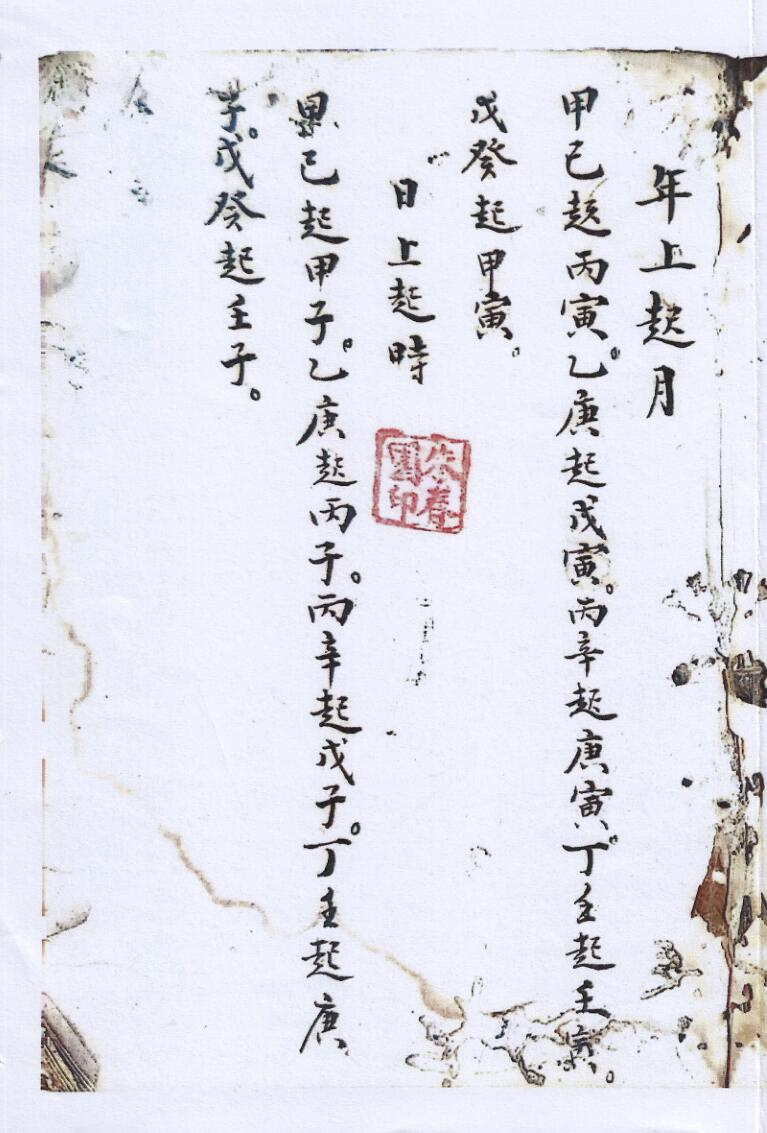 年上起月
甲己起丙寅。乙庚起戊寅。丙辛起庚寅。丁壬起壬寅。
戊癸起甲寅。
日上起時
甲己起甲子。乙庚起丙子。丙辛起戊子。丁壬起庚
子。戊癸起壬子。
朱春
印